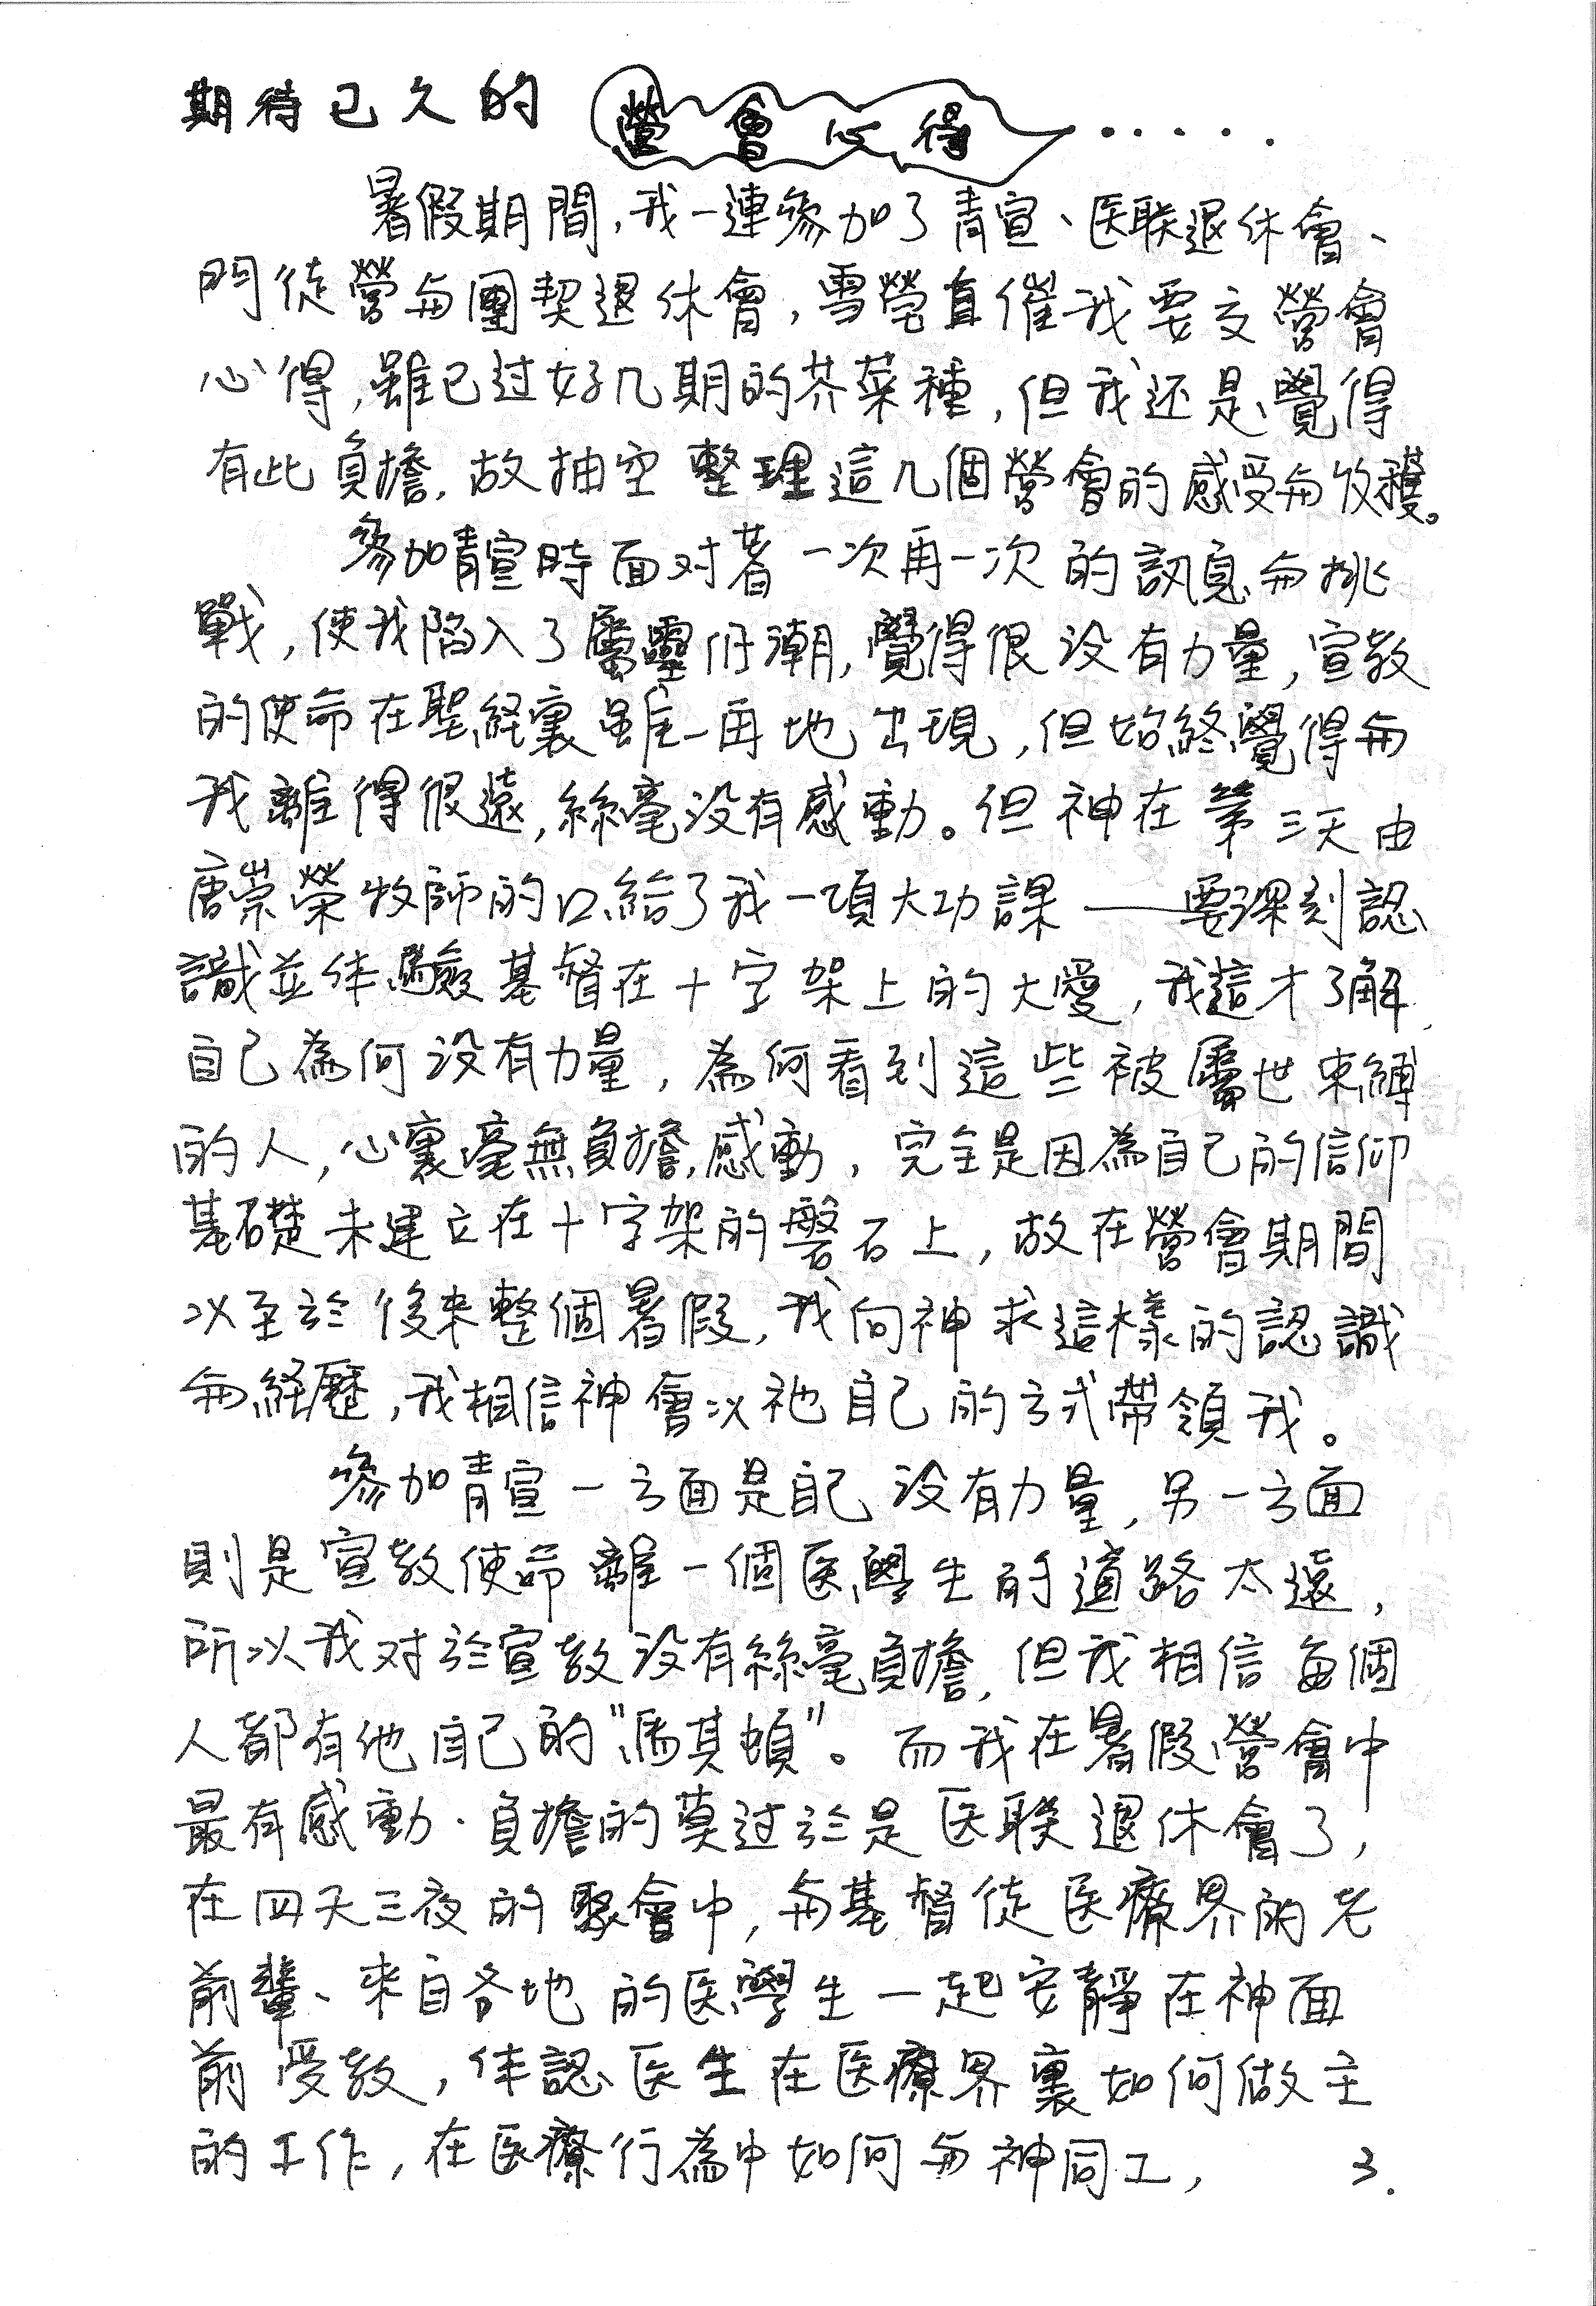 期待已久的 營會心得......
暑假期間,我一連參加了青宣、医联退休會、
門徒營与團契退休會,雪瑩直催我要交營會
心得,雖已过好几期的芥菜種,但我还是覺得
有此負擔,故抽空整理這几個營會的感受与收穫。
參加青宣時面对著一次再一次的訊息与挑
戰,使我陷入了屬靈低潮,覺得很没有力量,宣教
的使命在聖経裏雖一再地出現,但始終覺得与
我離得很遠,絲毫没有感動。但神在第三天由
唐崇榮牧師的口給了我一項大功課——要深刻認
識並体驗基督在十字架上的大愛,我這才了解
自己為何没有力量,為何看到這些被屬世束縛
的人,心裏毫無負擔,感動,完全是因為自己的信仰
基礎未建立在十字架的磐石上,故在營會期間
以至於後来整個暑假,我向神求這樣的認識
与経歷,我相信神會以祂自己的方式帶領我。
參加青宣一方面是自己没有力量,另一方面
則是宣教使命離一個医學生的道路太遠,
所以我对於宣教没有絲毫負擔,但我相信每個
人都有他自己的"馬其頓"。而我在暑假營會中
最有感動.負擔的莫过於是医联退休會了,
在四天三夜的聚會中,与基督徒医療界的老
前輩、來自各地的医學生一起安靜在神面
前受教,体認医生在医療界裏如何做主
的工作,在医療行為中如何与神同工,
3.